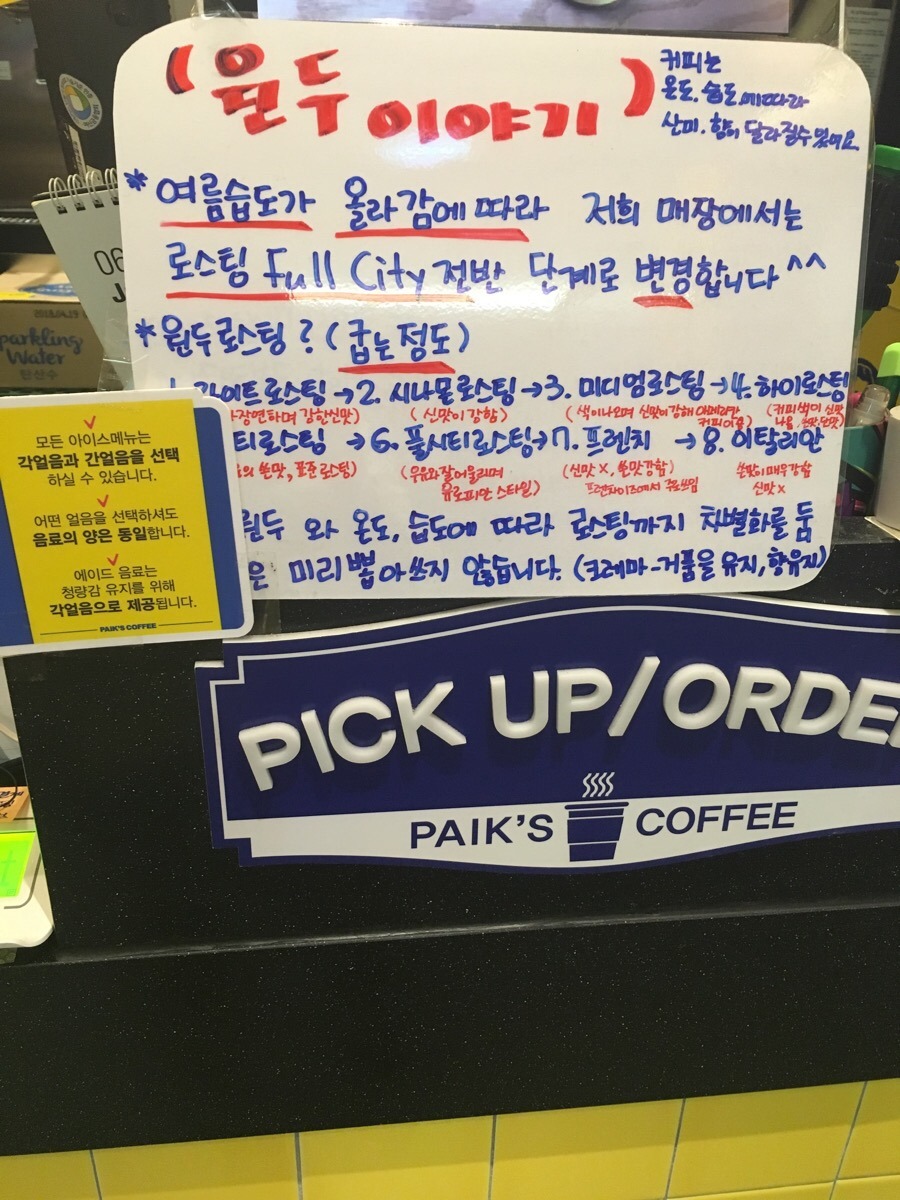 ( 원두 이야기 )
커피는
온도, 습도에따라
산미, 향이 달라질수있어요
* 여름습도가 올라감에 따라 저희 매장에서는
로스팅 Full City 전반 단계로 변경합니다 ^^
* 원두로스팅? (굽는정도)
라이트로스팅 → 2. 시나몬로스팅 → 3. 미디엄로스팅 → 4. 하이로스팅
자연하며 강한신맛) (신맛이 강함) (색이나오며 신맛이강해 아메리칸 커피이용) (커피색이 신맛 나음,
티로스팅 → 6. 풀시티로스팅 → 7. 프렌치 → 8. 이탈리안
의 쓴맛, 표준로스팅) (우유와잘어울리며 유로피안 스타일) (신맛 X, 쓴맛강함) 프랜차이즈에서 주로쓰임 쓴맛이매우강함 신맛 X
원두 와 온도, 습도에 따라 로스팅까지 차별화를 둠
은 미리 뽑아쓰지 않습니다. (크레마-거품을 유지, 향유지)
06
J
2018.04.19
parkling
Water
탄산수
모든 아이스메뉴는
각얼음과 간얼음을 선택
하실 수 있습니다.
어떤 얼음을 선택하셔도
음료의 양은 동일합니다.
에이드 음료는
청량감 유지를 위해
각얼음으로 제공됩니다.
PAIK'S COFFEE
PICK UP/ORDE
PAIK'S COFFEE